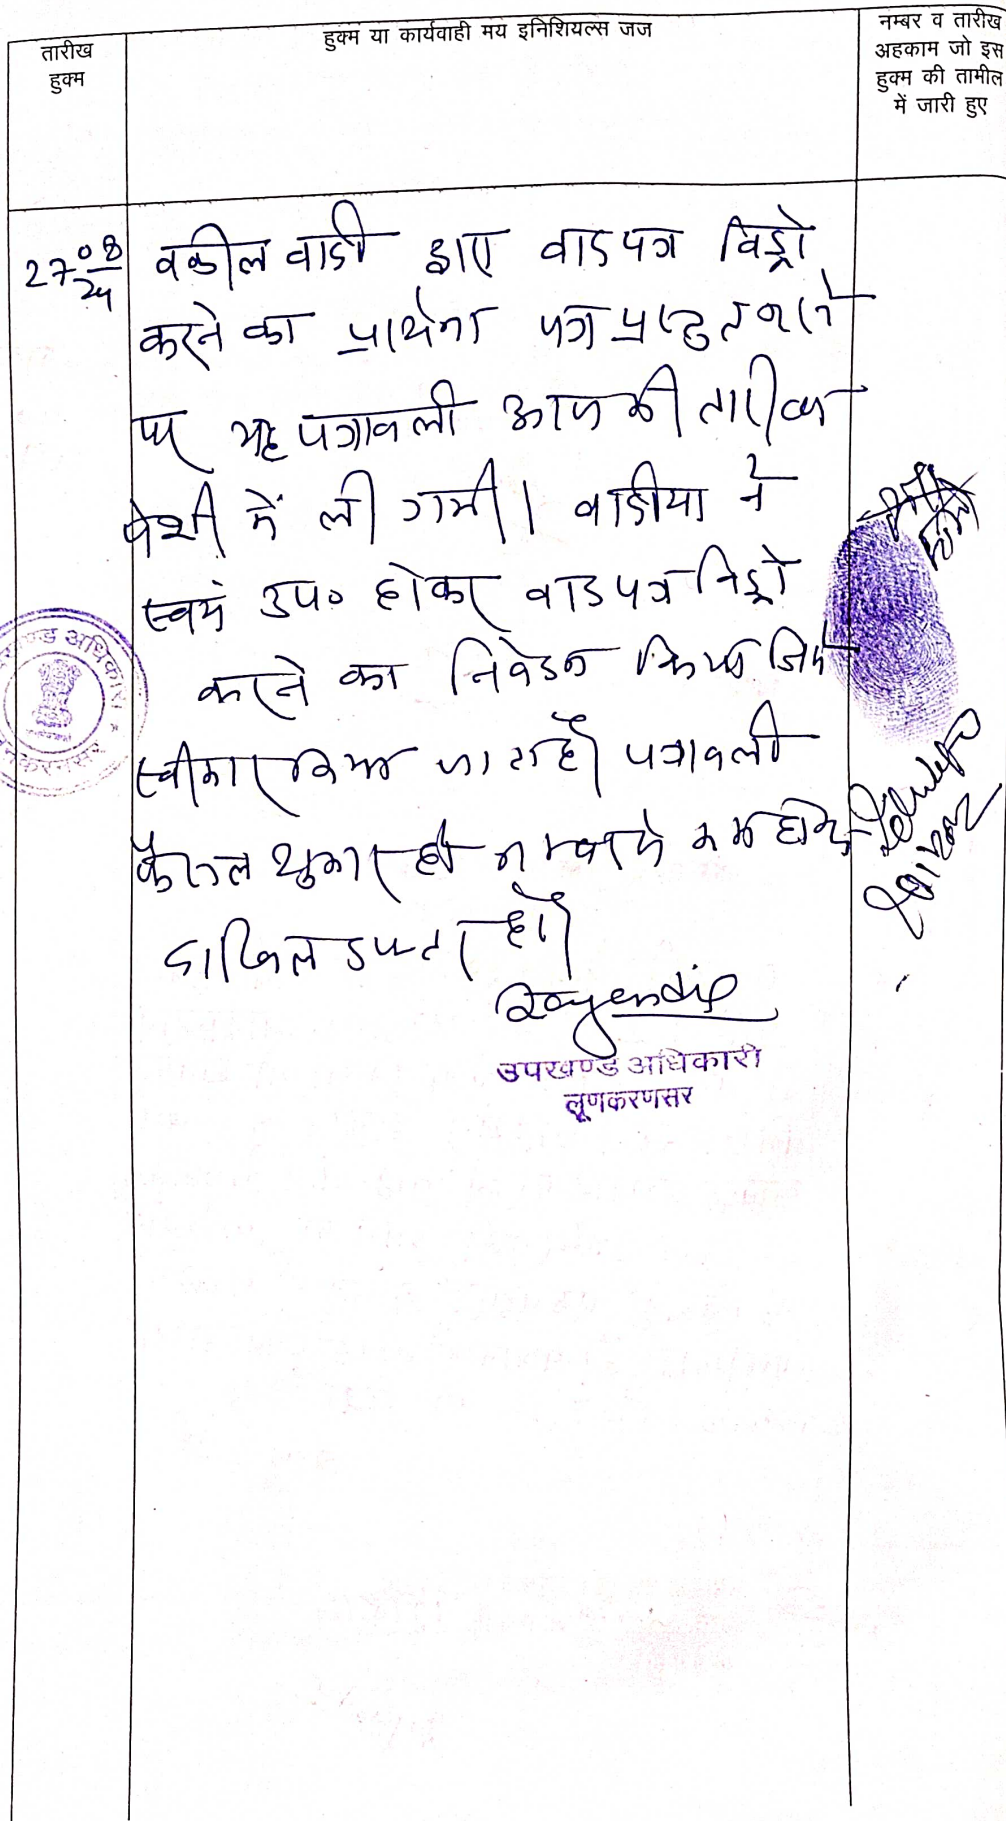 तारीख
हुक्म
हुक्म या कार्यवाही मय इनिशियल्स जज
नम्बर व तारीख
अहकाम जो इस
हुक्म की तामील
में जारी हुए
27 08/24
वकील वादी द्वारा वादपत्र विड्रो
करने का प्रार्थना पत्र प्रस्तुत करने
पर यह पत्रावली आज की तारीख
पेशी में ली गयी। वादीया ने
स्वयं उप० होकर वादपत्र विड्रो
करने का निवेदन किया जिसे
स्वीकार किया जाता है। पत्रावली
फैसल शुमार हो नम्बर से कम होकर
दाखिल दफ्तर हो।
उपखण्ड अधिकारी
लूणकरणसर